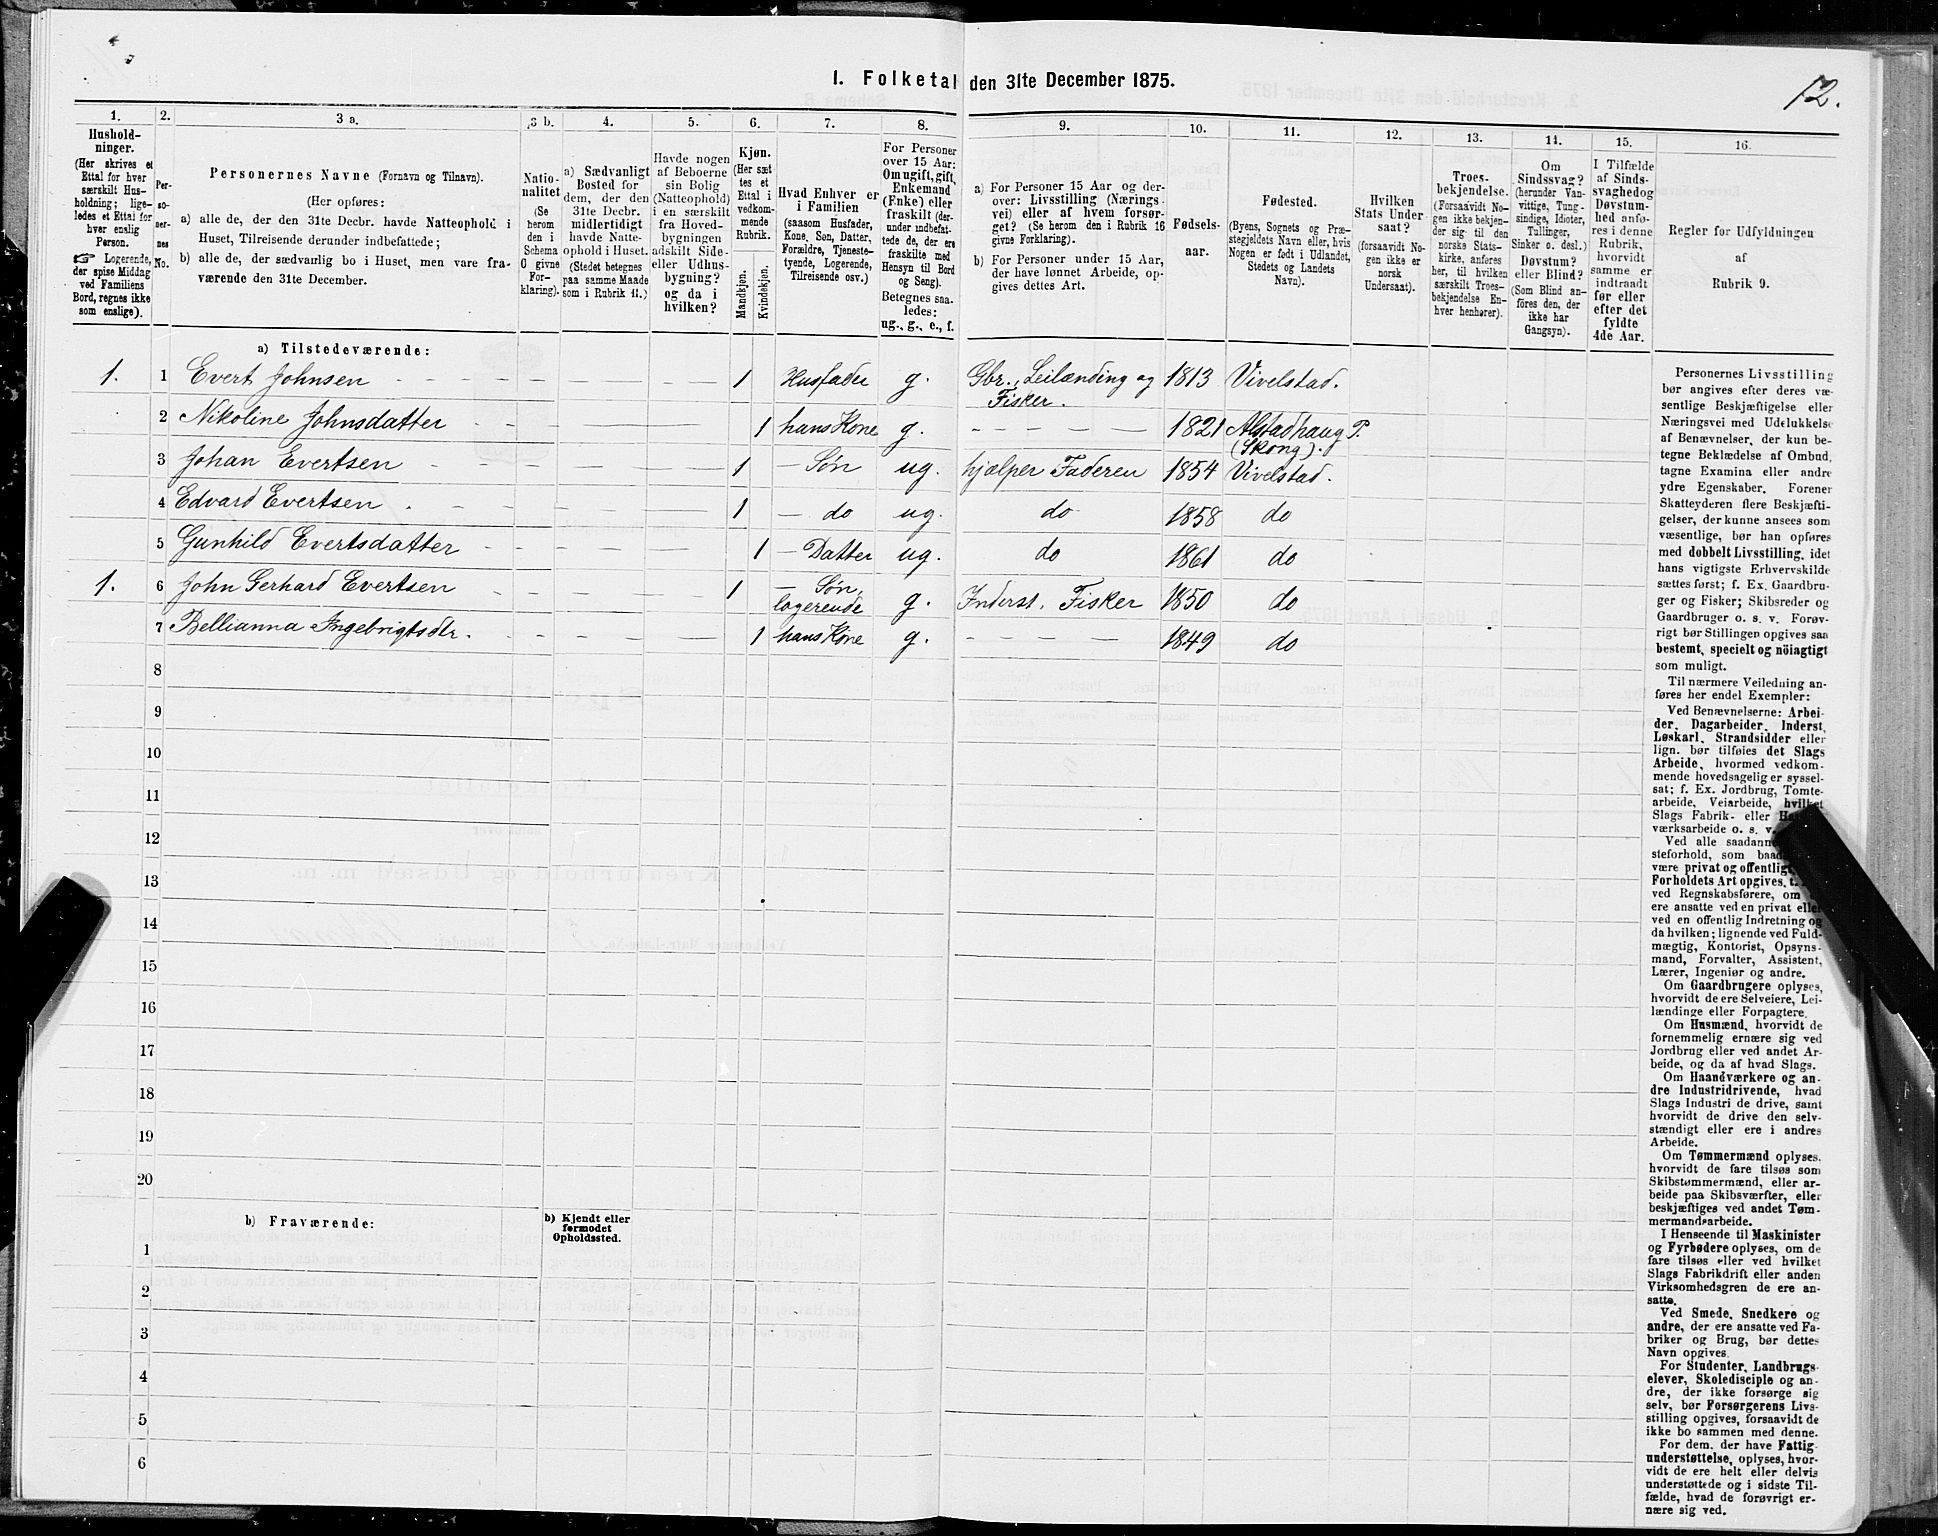 1. Folketal den 31te December 1875.
12.
1.
Hushold-
ninger.
(Her skrives et
Ettal for hver
særskilt Hus-
holdning; lige-
ledes et Ettal for
hver enslig
Person.
☞ Logerende,
der spise Middag
ved Familiens
Bord, regnes ikke
som enslige).
2.
Per-
so-
ner-
nes
No.
3 a.
Personernes Navne (Fornavn og Tilnavn).
(Her opføres:
a) alle de, der den 31te Decbr. havde Natteophold i
Huset, Tilreisende derunder indbefattede;
b) alle de, der sædvanlig bo i Huset, men vare fra-
værende den 31te December.
3 b.
Natio-
nalitet
(Se
herom
den i
Schema
O givne
For-
klaring).
4.
a) Sædvanligt
Bosted for
dem, der den
31te Decbr.
midlertidigt
havde Natte-
ophold i Huset.
(Stedet betegnes
paa samme Maade
som i Rubrik 11.)
5.
Havde nogen
af Beboerne
sin Bolig
(Natteophold)
i en særskilt
fra Hoved-
bygningen
adskilt Side-
eller Udhus-
bygning?
og da i
hvilken?
6.
Kjøn.
(Her sæt
tes et
Ettal i
vedkom-
mende
Rubrik.
Mandkjøn.
Kvindekjøn.
7.
Hvad Enhver er
i Familien
(saasom Husfader,
Kone, Søn, Datter,
Forældre, Tjeneste-
tyende, Logerende,
Tilreisende osv.)
8.
For Personer
over 15 Aar:
Om ugift, gift,
Enkemand
(Enke) eller
fraskilt (der-
under indbefat-
tede de, der ere
fraskilte med
Hensyn til Bord
og Seng).
Betegnes saa-
ledes:
ug., g., e., f.
9.
a) For Personer 15 Aar og der-
over: Livsstilling (Nærings-
vei) eller af hvem forsør-
get? (Se herom den i Rubrik 16
givne Forklaring).
b) For Personer under 15 Aar,
der have lønnet Arbeide, op-
gives dettes Art.
10.
Fødsels-
aar.
11.
Fødested.
(Byens, Sognets og Præ-
stegjeldets Navn eller, hvis
Nogen er født i Udlandet,
Stedets og Landets
Navn).
12.
Hvilken
Stats Under-
saat?
(forsaavidt No-
gen ikke er
norsk
Undersaat).
13.
Troes-
bekjendelse.
(Forsaavidt No-
gen ikke bekjen-
der sig til den
norske Stats-
kirke, anføres
her, til hvilken
særskilt Troes-
bekjendelse En-
hver henhører).
14.
Om
Sindssvag?
(herunder Van-
vittige, Tung-
sindige, Idioter,
Tullinger,
Sinker o. desl.)
Døvstum?
eller Blind?
(Som Blind an-
føres den, der
ikke har
Gangsyn).
15.
I Tilfælde
af Sinds-
svaghed og
Døvstum-
hed anfø-
res i denne
Rubrik,
hvorvidt
samme er
indtraadt
før eller
efter det
fyldte
4de Aar.
16.
Regler for Udfyldningen
af
Rubrik 9.
a) Tilstedeværende:
1. 1 Evert Johnsen 1 Husfader g. Gbr., Leilænding og 1813 Vivelstad.
Fisker.
2 Nikoline Johnsdatter 1 hans Kone g. 1821 Alstadhaug P.
(Skong).
3 Johan Evertsen 1 – Søn ug. hjælper Faderen 1854 Vivelstad.
4 Edvard Evertsen 1 – do ug. do 1858 do
5 Gunhild Evertsdatter 1 – Datter ug. do 1861 do
1. 6 John Gerhard Evertsen 1 – Søn,
logerende g. Inderst, Fisker 1850 do
7 Bellianna Ingebrigtsdtr. 1 hans Kone g. 1849 do
8
9
10
11
12
13
14
15
16
17
18
19
20
b) Fraværende:
b) Kjendt eller
formodet
Opholdssted.
1
2
3
4
5
6
Personernes Livsstilling
bør angives efter deres væ-
sentlige Beskjæftigelse eller
Næringsvei med Udelukkelse
af Benævnelser, der kun be-
tegne Beklædelse af Ombud,
tagne Examina eller andre
ydre Egenskaber. Forener
Skatteyderen flere Beskjæfti-
gelser, der kunne ansees som
væsentlige, bør han opføres
med dobbelt Livsstilling, idet
hans vigtigste Erhvervskilde
sættes først; f. Ex. Gaardbru-
ger og Fisker; Skibsreder og
Gaardbruger o. s. v. Forøv-
rigt bør Stillingen opgives saa
bestemt, specielt og nöiagtigt
som muligt.
Til nærmere Veiledning an-
føres her endel Exempler:
Ved Benævnelserne: Arbei-
der, Dagarbeider, Inderst,
Løskarl, Strandsidder eller
lign. bør tilføies det Slags
Arbeide, hvormed vedkom-
mende hovedsagelig er syssel-
sat; f. Ex. Jordbrug, Tomte-
arbeide, Veiarbeide, hvilket
Slags Fabrik- eller
værksarbeide o. s. v.
Ved alle saadanne
steforhold, som
være privat og offentlig
Forholdets Art opgives,
ved Regnskabsførere, om
ere ansatte ved en privat eller
ved en offentlig Indretning og
da hvilken; lignende ved Fuld-
mægtig, Kontorist, Opsyns-
mand, Forvalter, Assistent,
Lærer, Ingeniør og andre.
Om Gaardbrugere oplyses,
hvorvidt de ere Selveiere, Lei-
lændinge eller Forpagtere.
Om Husmænd, hvorvidt de
fornemmelig ernære sig ved
Jordbrug eller ved andet Ar-
beide, og da af hvad Slags.
Om Haandværkere og an-
dre Industridrivende, hvad
Slags Industri de drive, samt
hvorvidt de drive den selv-
stændigt eller ere i andres
Arbeide.
Om Tømmermænd oplyses,
hvorvidt de fare tilsøs som
Skibstømmermænd, eller ar-
beide paa Skibsværfter, eller
beskjæftiges ved andet Tøm-
mermandsarbeide.
I Henseende til Maskinister
og Fyrbødere oplyses, om de
fare tilsøs eller ved hvilket
Slags Fabrikdrift eller anden
Virksomhedsgren de ere an-
satte.
Ved Smede, Snedkere og
andre, der ere ansatte ved Fa-
briker og Brug, bør dettes
Navn opgives.
For Studenter, Landbrugs-
elever, Skoledisciple og an-
dre, der ikke forsørge sig
selv, bør Forsørgerens Livs-
stilling opgives, forsaavidt de
ikke bo sammen med denne.
For dem, der have Fattig-
understøttelse, oplyses, hvor-
vidt de ere helt eller delvis
understøttede og i sidste Til-
fælde, hvad de forøvrigt er-
nære sig ved.